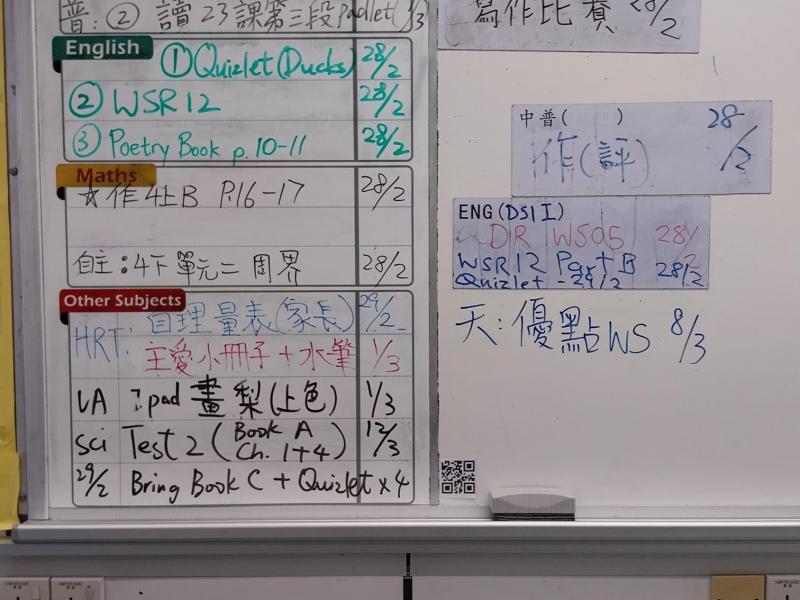 普：② 讀23課第三段padlet 1/3
English
① Quizlet (Ducks) 28/2
② WSR12 28/2
③ Poetry Book p.10-11 28/2
Maths
☆作4上B P.16-17 28/2
自主：4下單元二 周界 28/2
Other Subjects
HRT: 自理量表(家長) 29/2
主愛小冊子+水筆 1/3
VA ipad 畫梨(上色) 1/3
Sci Test 2 (Book A Ch. 1+4) 12/3
29/2 Bring Book C + Quizlet x4
寫作比賽 28/2
中普( ) 28/2
作(評)
ENG (DSI I)
DR WS05 28/2
WSR12 Part B 28/2
Quizlet - 29/2
天: 優點WS 8/3